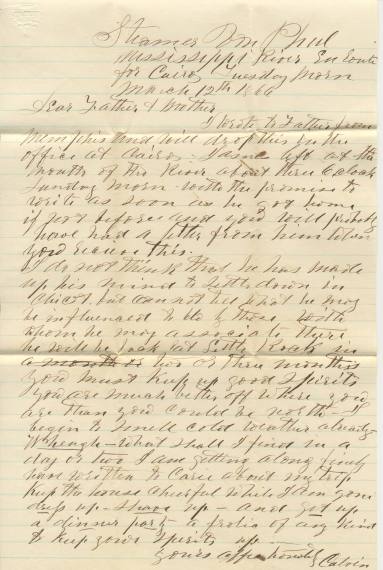 Steamer Von Phul
Mississippi River En Route
for Cairo, Tuesday Morn
March 12th 186
Dear Father & Mother
I wrote to Father from
Memphis and will drop this in the
office at Cairo. James left at the
Mouth of the River about three O'clock
Sunday Morn - with the promise to
write as soon as he got home
if not before and you will probably
have had a letter from him when
you recieve this.
I do not think that he has made
up his mind to settle down in
Chicot, but can not tell what he may
be influenced to do by those with
whom he may associate there
he will be back at Little Rock in
a month or two or three months
You must keep up good spirits
You are much better off where you
are than you could be north - I
begin to smell cold weather already
Whe what shall I find in a
day or two I am getting along finely
have written to Carrie about my trip
Keep the house cheerful while I am gone
dress up - up - and got up
a dinner party - a frolic of any kind
to keep your spirits up
Yours affectionately Calvin